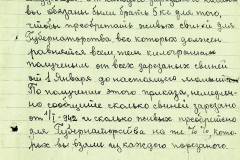 вы обязаны были брать 5 кг для того,
чтобы превратить живых свиней для
Губернаторства вес которых должен
равняется всем тем килограммам
полученным от всех зарезаных свиней
от 1 Января до настоящего момента
По получении этого приказа, немедлен-
но сообщите сколько свиней зарезано
от 1/I-942 и сколько живых превращено
для Губернаторства на те % %, кото-
рых вы взяли из каждого порезаного.